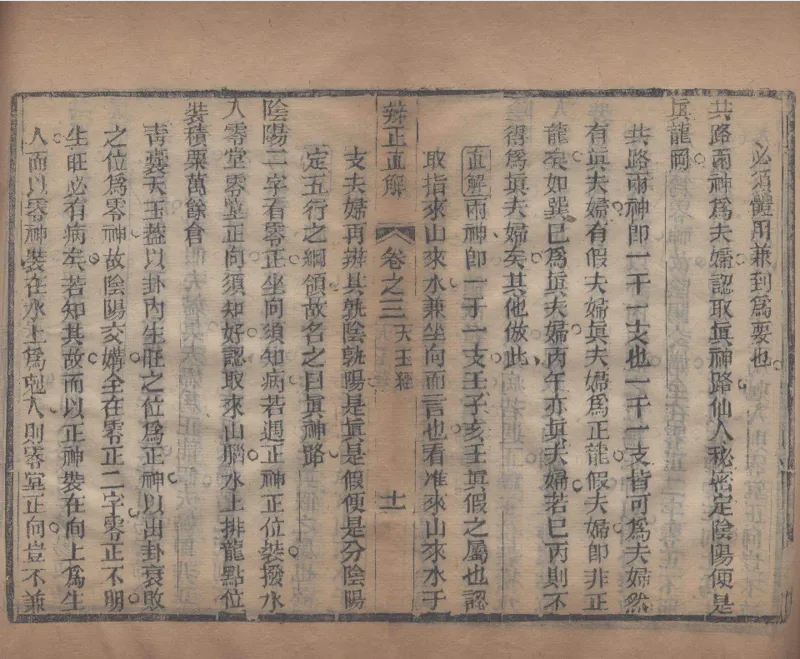 必須體用兼到爲要也
共路兩神爲夫婦認取眞神路仙人秘密定陰陽便是
眞龍岡
共路兩神即一干一支也一干一支皆可爲夫婦然
有眞夫婦有假夫婦眞夫婦爲正龍假夫婦即非正
龍矣如巽巳爲眞夫婦丙午亦眞夫婦若巳丙則不
得爲眞夫婦矣其他倣此
直解兩神即一干一支壬子亥壬眞假之屬也認
取指來山來水兼坐向而言也看准來山來水干
辨正直解 卷之三 天玉經 十一
支夫婦再辨其孰陰孰陽是眞是假便是分陰陽
定五行之綱領故名之曰眞神路
陰陽二字看零正坐向須知病若遇正神正位裝撥水
入零堂零堂正向須知好認取來山腦水上排龍點位
裝積粟萬餘倉
靑囊天玉蓋以卦內生旺之位爲正神以出卦衰敗
之位爲零神故陰陽交媾全在零正二字零正不明
生旺必有病矣若知其故而以正神裝在向上爲生
入而以零神裝在水上爲剋入則零堂正向豈不兼